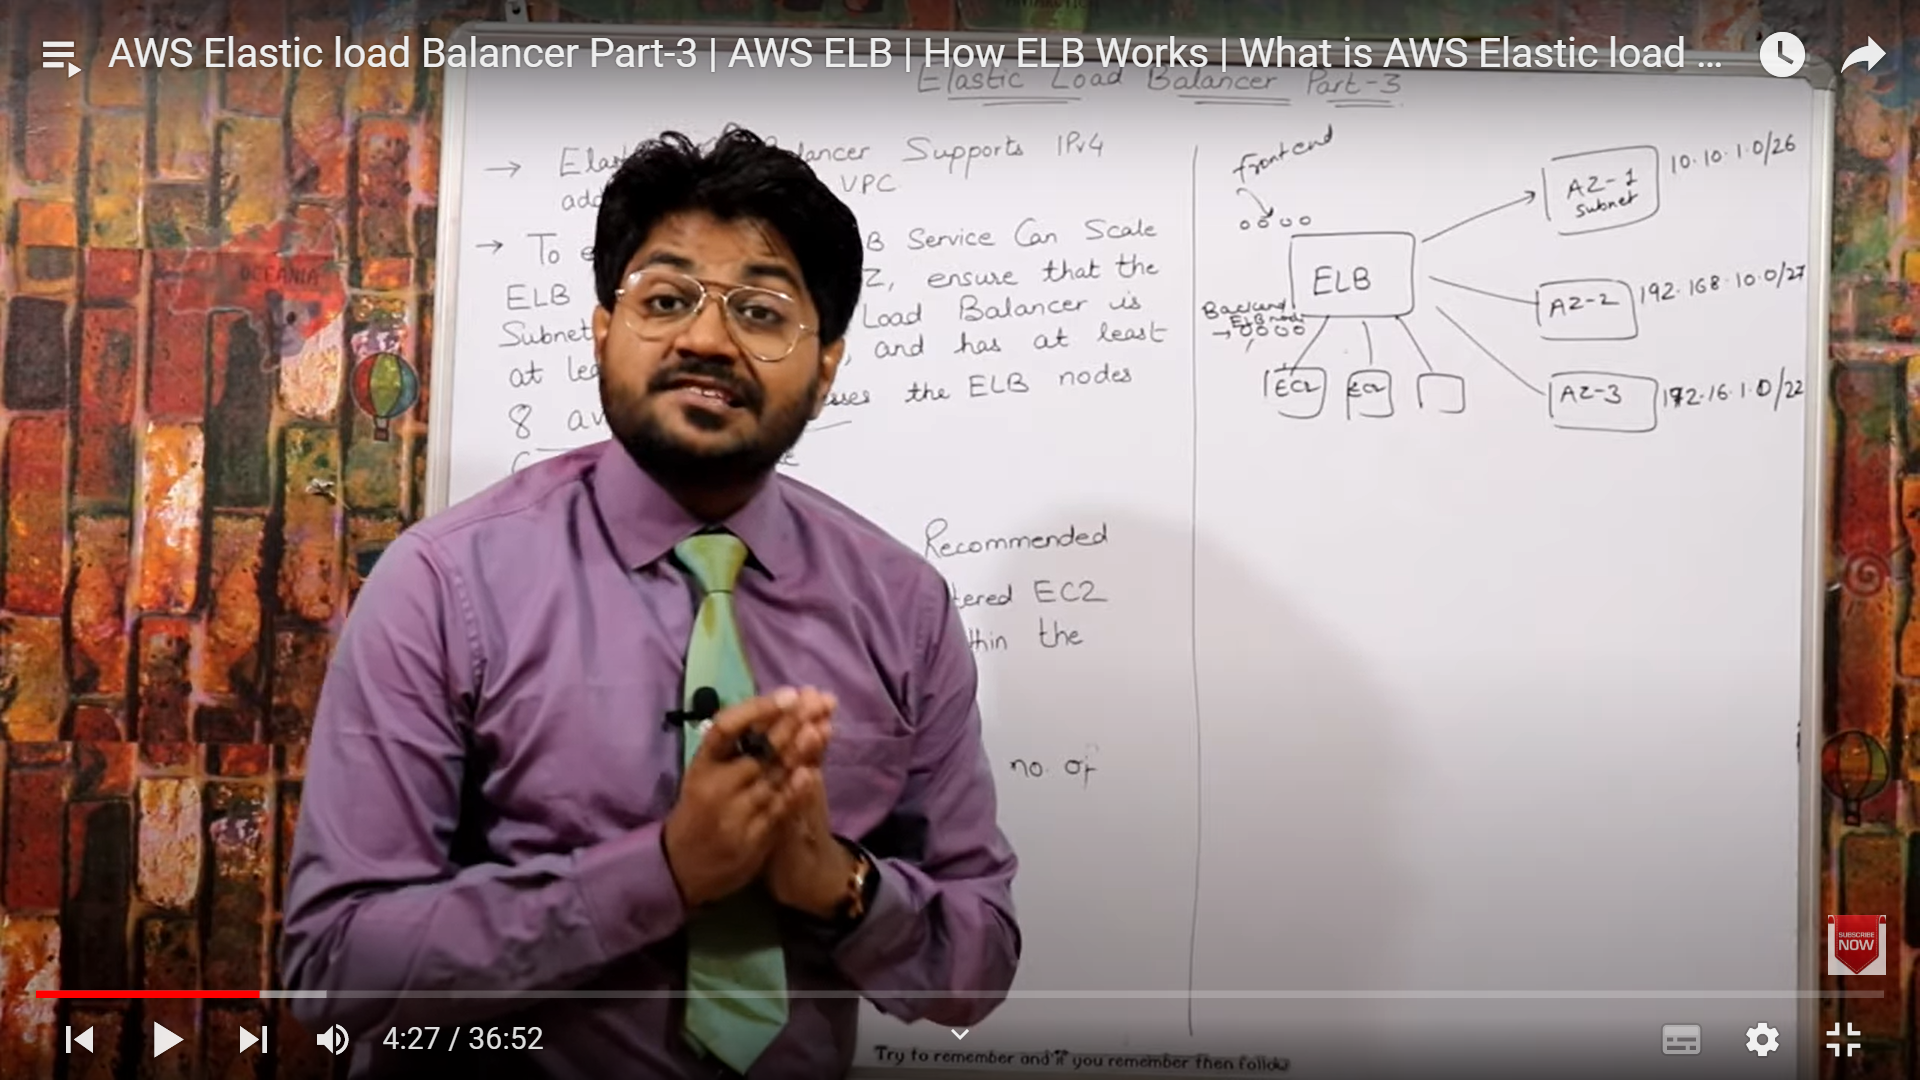 AWS Elastic load Balancer Part-3 | AWS ELB | How ELB Works | What is AWS Elastic load ...
Elastic Load Balancer Part-3
→ Elas lancer Supports IPv4
add VPC
→ To e B Service Can Scale
ELB Z, ensure that the
Subnet Load Balancer is
at lea , and has at least
8 av sses the ELB nodes
Recommended
tered EC2
thin the
no. of
frontend
ELB
Backend
ELB nodes
EC2 EC2
AZ-1
Subnet
10.10.1.0/26
AZ-2 192.168.10.0/27
AZ-3 172.16.1.0/22
OCEANIA
SUBSCRIBE
NOW
4:27 / 36:52
Try to remember and if you remember then follow